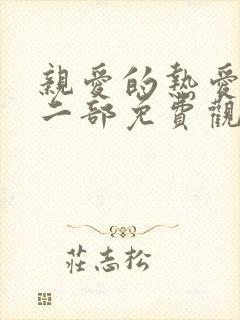 親愛的熱愛
二部免費觀
莊志松